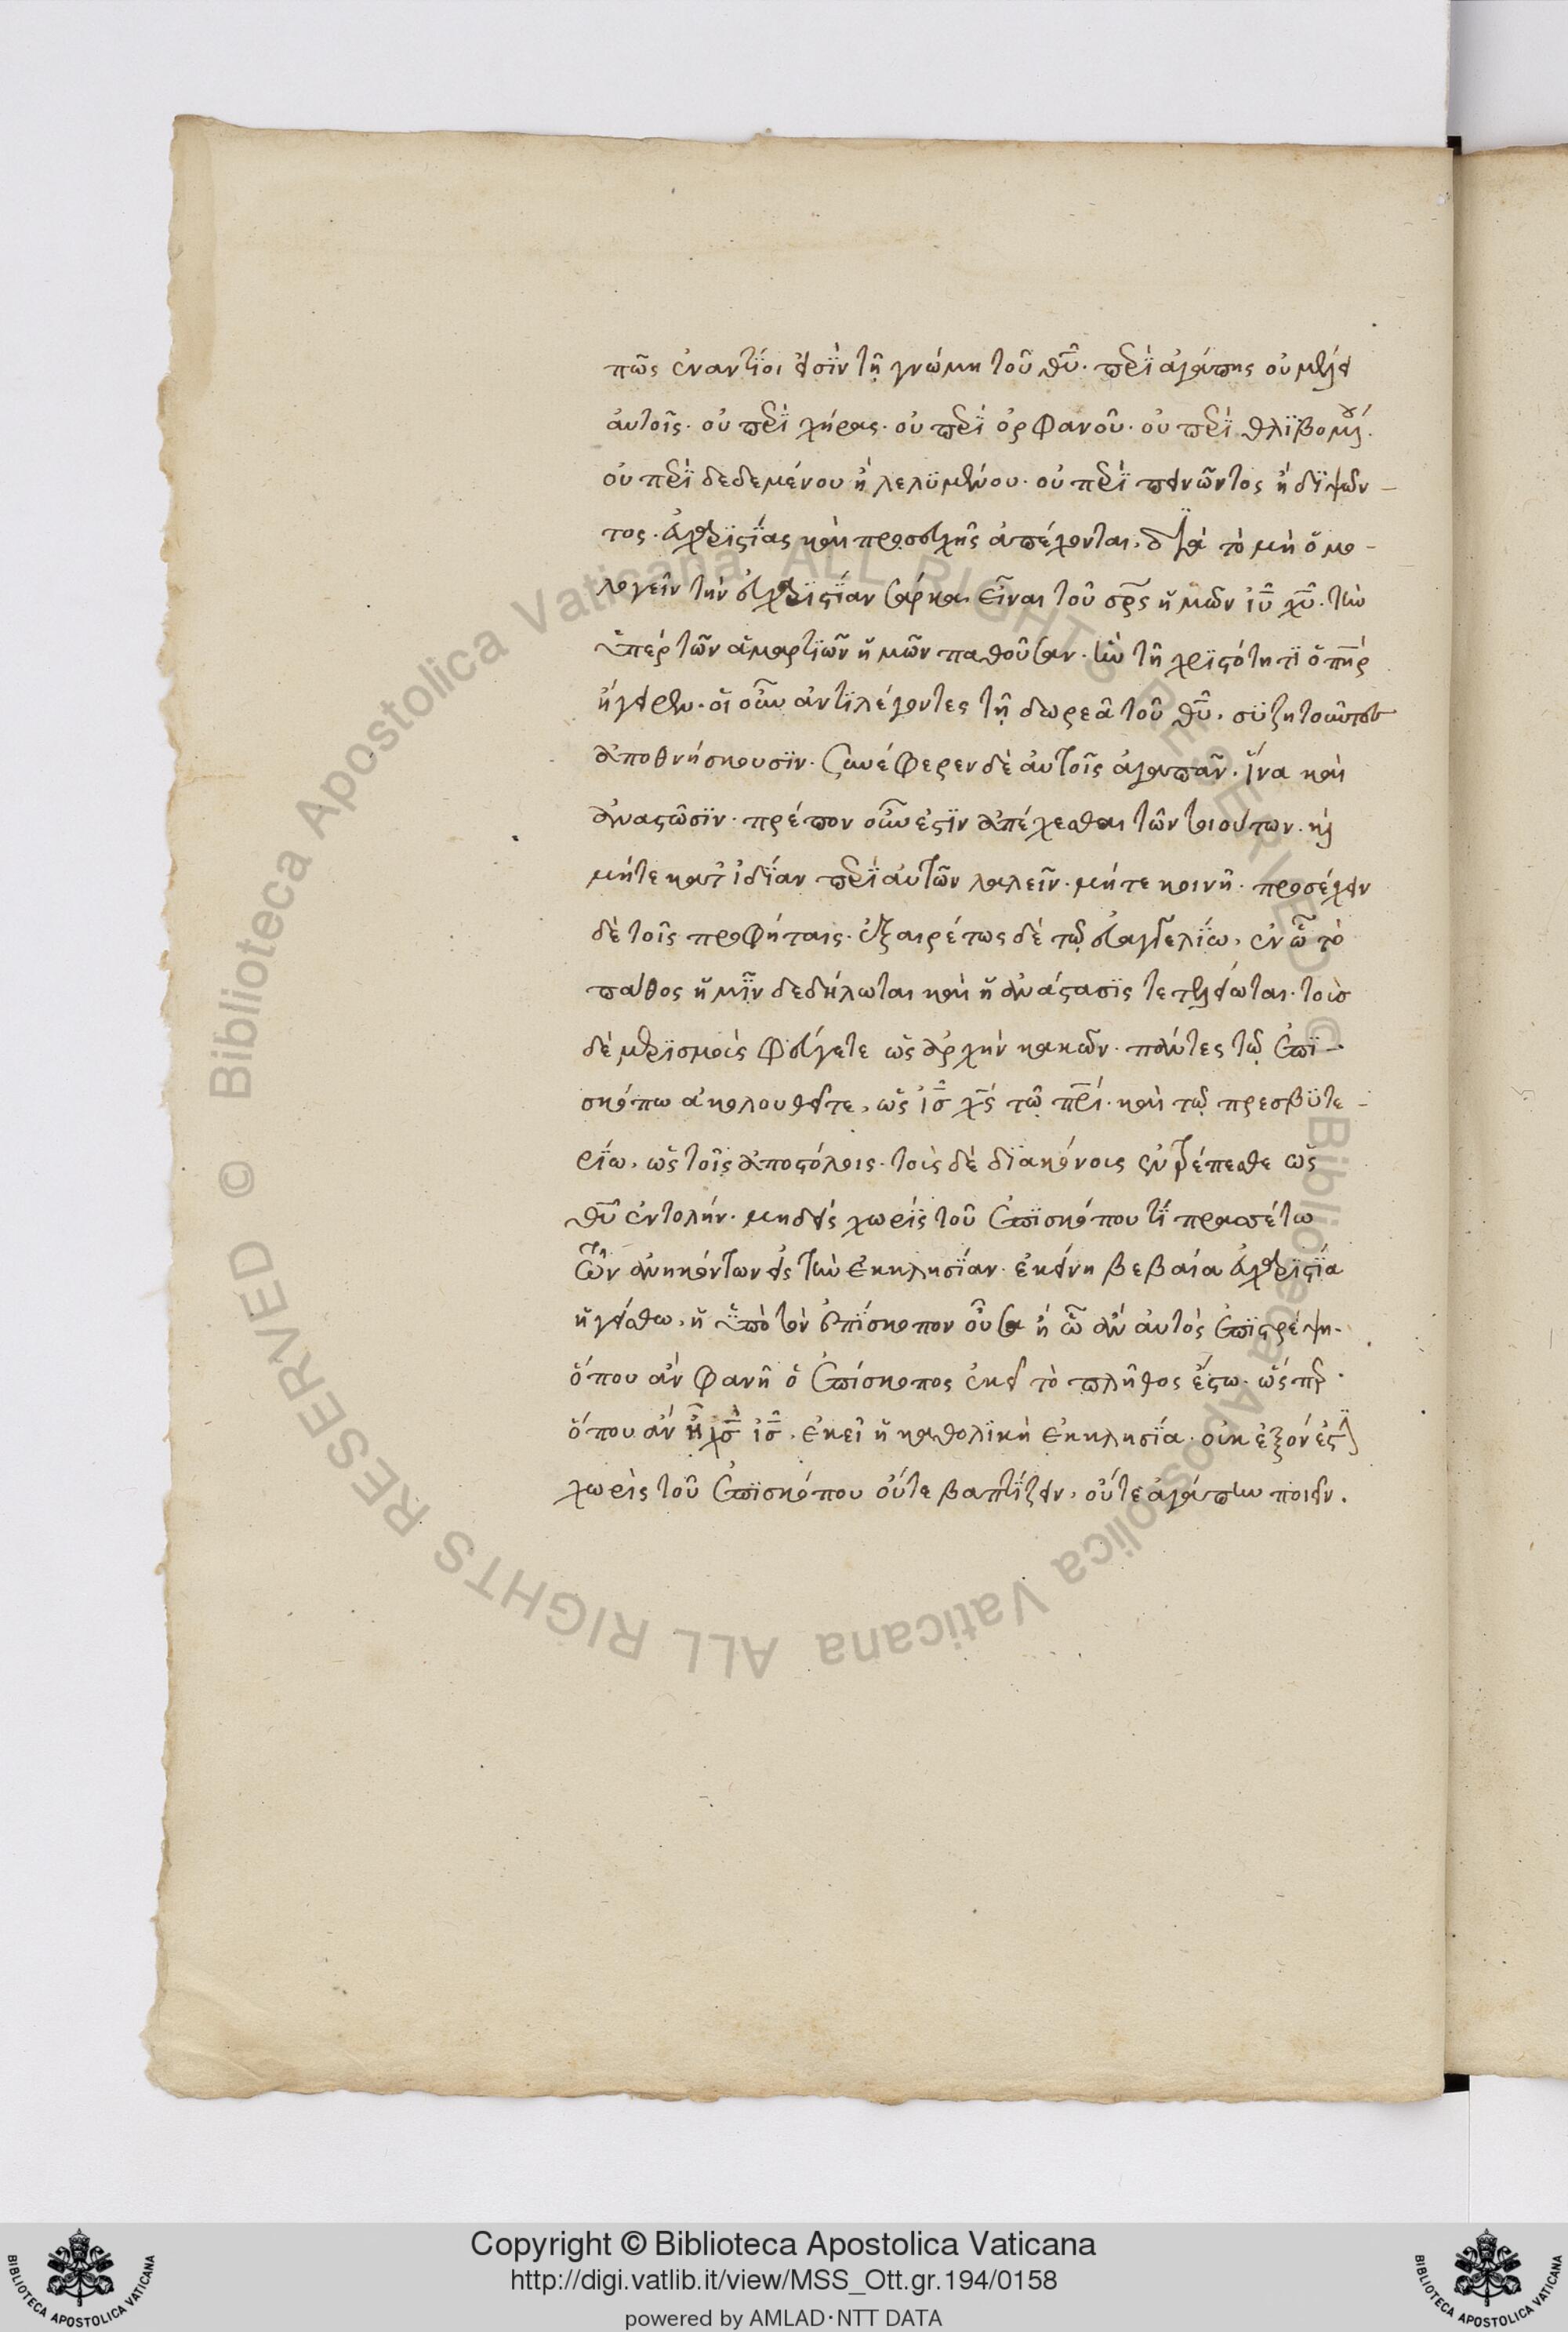 πῶς ἐναντίοι εἰσϊν τῆ γνώμη τοῦ θυ̅. περϊ ἀγάπης οὐ μέλει
ἀυτοῖς. οὐ περϊ χήρας. οὐ περϊ ὀρφανοῦ. οὐ περϊ θλϊβομένου.
οὐ περϊ δεδεμένου ἢ λελϋμένου. οὐ περϊ πεινῶντος ἢ δϊψῶν-
τος. ἐυχαρϊστΐας καὶ προσευχῆς ἀπέχονται, δϊὰ τὸ μὴ ὁμο-
λογεῖν τὴν ἐυχαρϊστΐαν σάρκα εἶναι τοῦ σρ̅ς ἡμῶν ιυ̅ χυ̅. τὴν
ὑπὲρ τῶν ἁμαρτϊῶν ἡμῶν παθοῦσαν. ἣν τῆ χρϊστότητϊ ὁ πη̅ρ
ἤγειρεν. οἱ οὖν ἀντϊλέγοντες τῆ δωρεᾶ τοῦ θυ̅. σϋζητοῦντες
ἀποθνήσκουσϊν. συνέφερεν δὲ ἀυτοῖς ἀγαπᾶν. ἵνα καὶ
ἀναστῶσϊν. πρέπον οὖν ἐστϊν ἀπέχεσθαι τῶν τοιούτων. κὶ
μήτε κατ' ἰδΐαν περϊ ἀυτῶν λαλεῖν. μήτε κοινῆ. προσέχειν
δὲ τοῖς προφήταις. ἐξαιρέτως δὲ τῶ ἐυαγγελΐω, ἐν ὧ τὸ
πάθος ἡμῖν δεδήλωται καὶ ἡ ἀνάστασϊς τετελείωται. τοὺσ
δὲ μερϊσμοὺς φεύγετε ὡς ἀρχὴν κακῶν. πάντες τῶ ἐπϊ-
σκόπω ἀκολουθεῖτε, ὡς ισ̅ χς̅ τῶ πρι̅. καὶ τῶ πρεσβϋτε-
ρΐω, ὡς τοῖς ἀποστόλοις. τοὺς δὲ δϊακόνους ἐντρέπεσθε ὡς
θυ̅ ἐντολήν. μηδεὶς χωρὶς τοῦ ἐπϊσκόπου τΐ πρασσέτω
τῶν ἀνηκόντων εἰς τὴν ἐκκλησΐαν. ἐκείνη βεβαία ἐυχαρϊστΐα
ἡγείσθω, ἡ ὑπὸ τὸν ἐπΐσκοπον οὖσα ἢ ὧ ἂν ἀυτὸς ἐπϊτρέψη.
ὅπου ἂν φανῆ ὁ ἐπίσκοπος ἐκεῖ τὸ πλῆθος ἔστω. ὥσπερ
ὅπου ἂν ἦ χσ̅ ισ̅, ἐκεῖ ἡ καθολϊκὴ ἐκκλησΐα. οὐκ ἐξὸν ἐστϊν
χωρὶς τοῦ ἐπϊσκόπου οὔτε βαπτΐζειν, οὔτε ἀγάπην ποιεῖν.
Copyright © Biblioteca Apostolica Vaticana
http://digi.vatlib.it/view/MSS_Ott.gr.194/0158
powered by AMLAD·NTT DATA
BIBLIOTECA APOSTOLICA VATICANA
BIBLIOTECA APOSTOLICA VATICANA
© Biblioteca Apostolica Vaticana ALL RIGHTS RESERVED
© Biblioteca Apostolica Vaticana ALL RIGHTS RESERVED